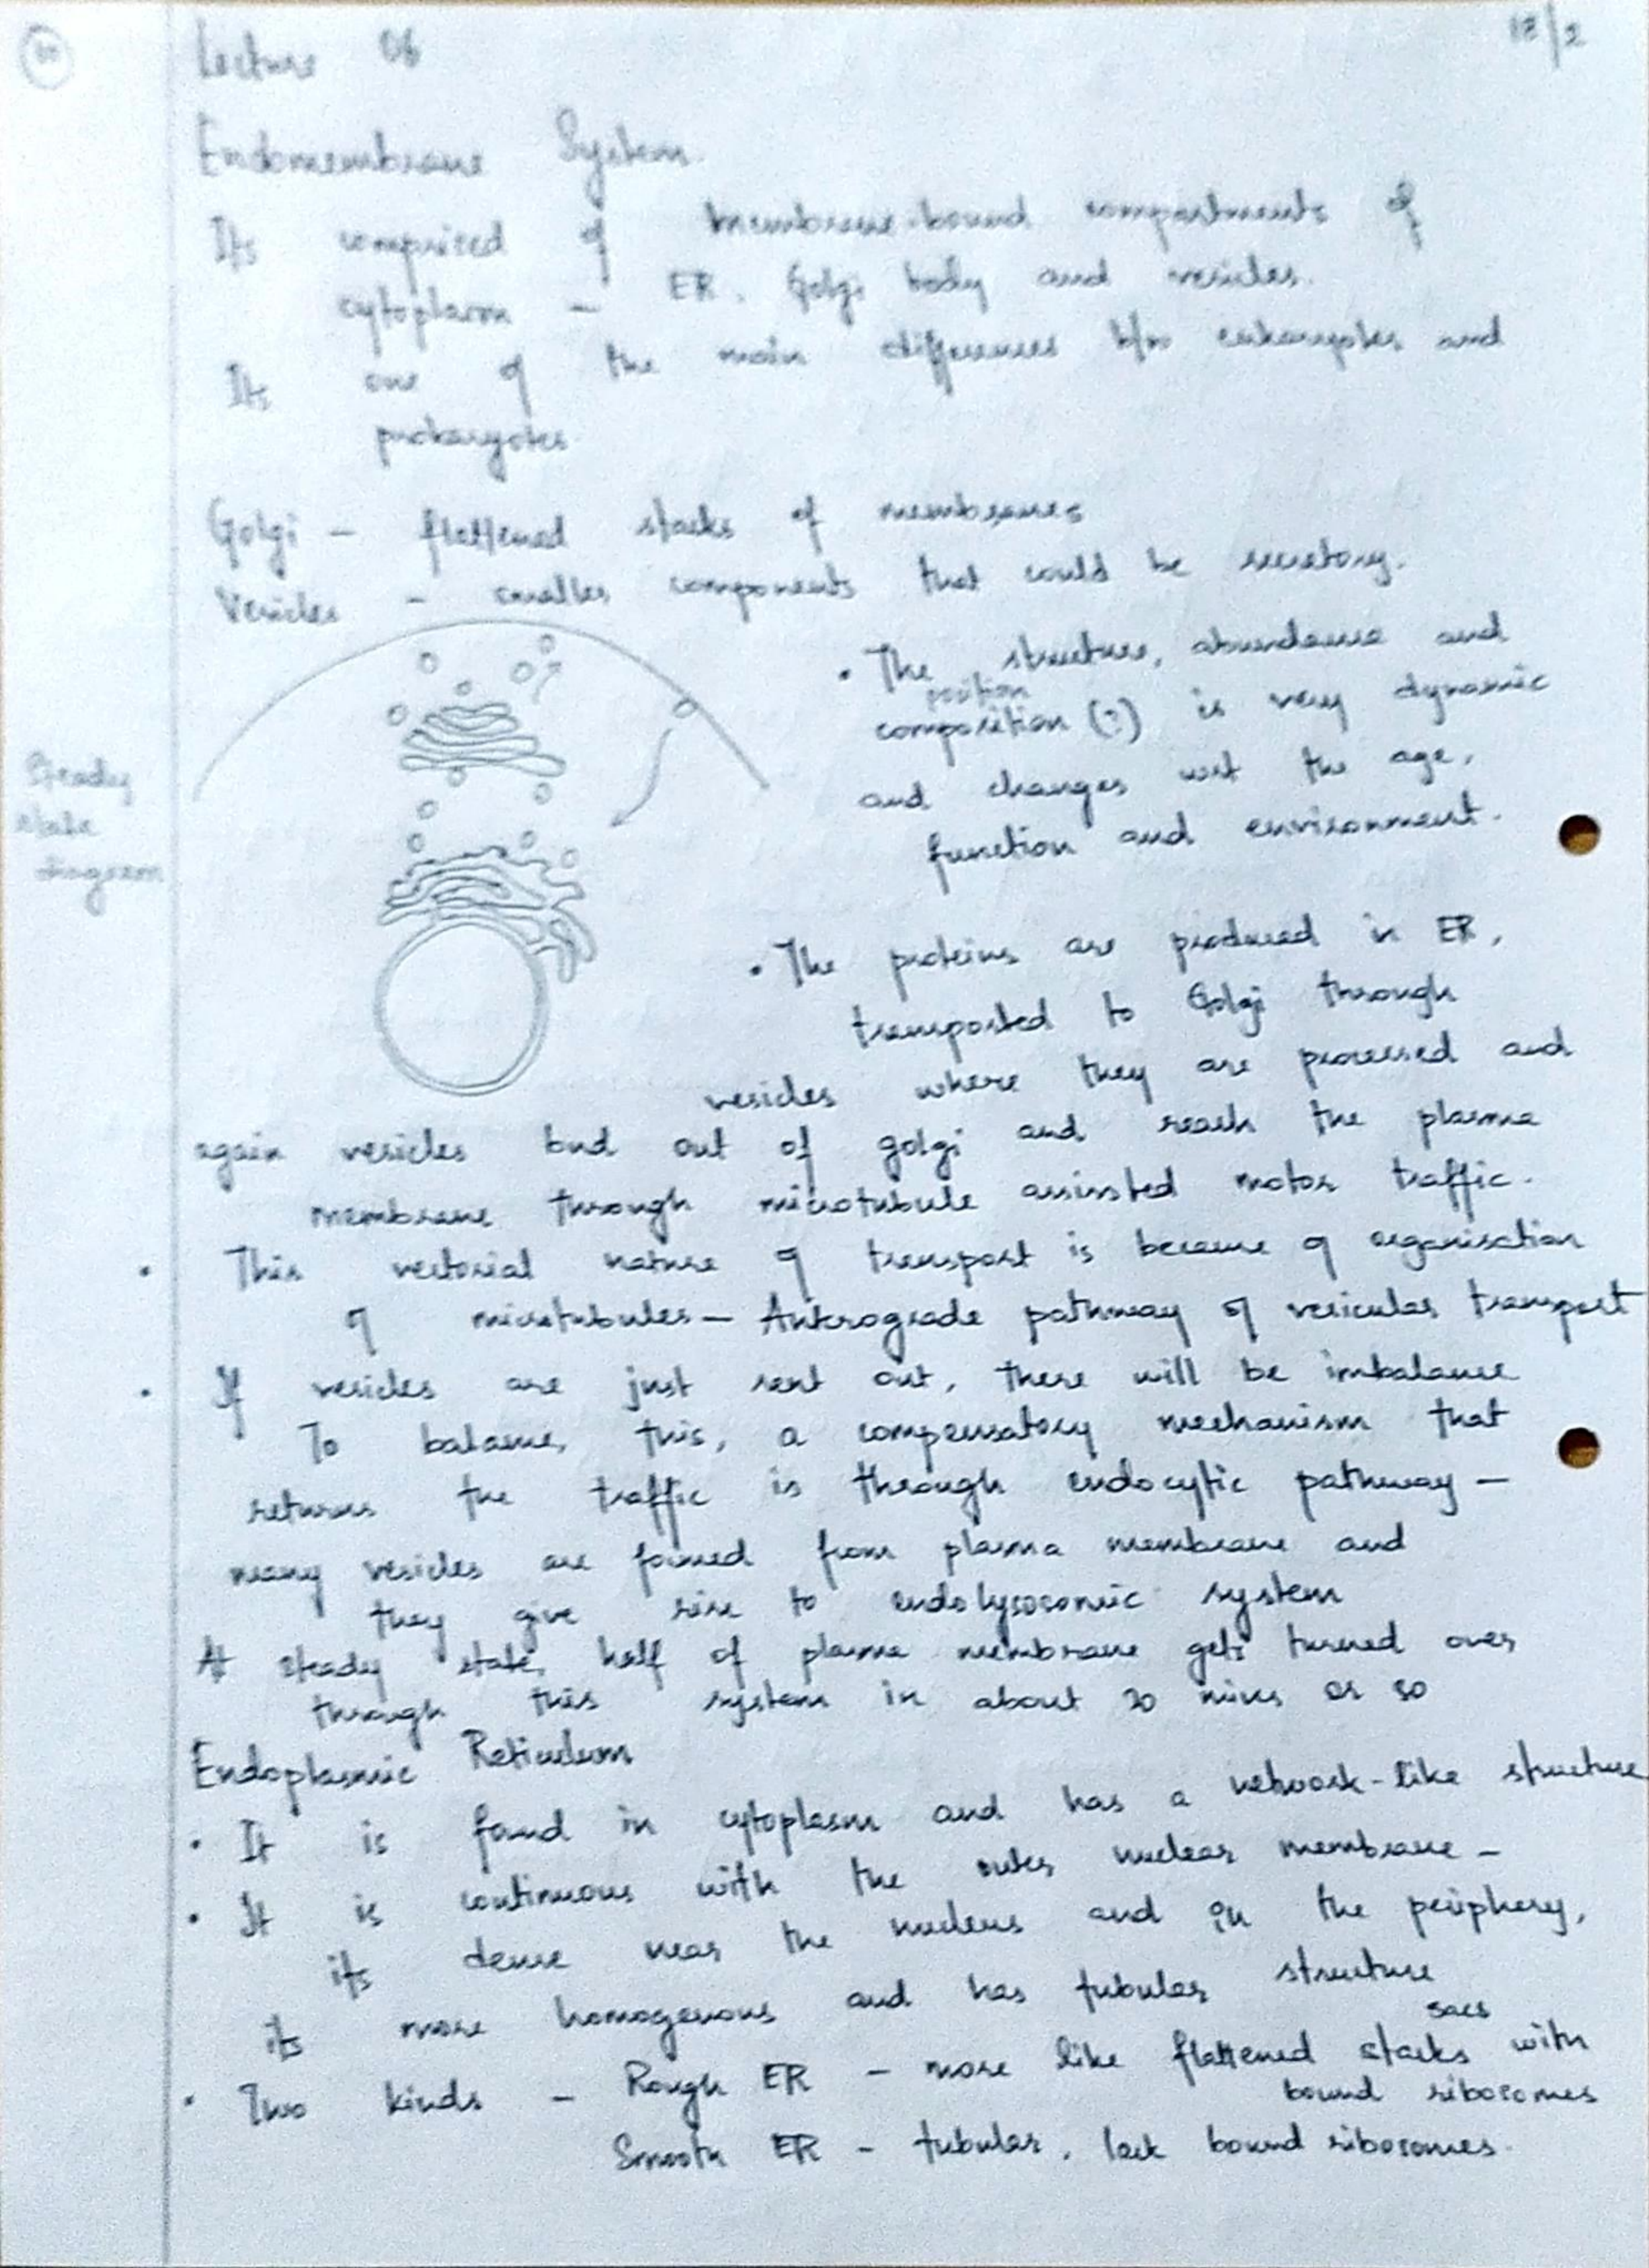 Lecture 06
18/2
Endomembrane System
Its comprised of membrane-bound compartments of
cytoplasm - ER, Golgi body and vesicles.
Its one of the main differences b/w eukaryotes and
prokaryotes
Golgi - flattened stacks of membranes
Vesicles - smaller components that could be secretory.
Steady
state
diagram
• The structure, abundance and
position
composition (?) is very dynamic
and changes wrt the age,
function and environment.
• The proteins are produced in ER,
transported to Golgi through
vesicles where they are processed and
again vesicles bud out of golgi and reach the plasma
membrane through microtubule assissted motor traffic.
• This vectorial nature of transport is because of organisation
of microtubules - Anterograde pathway of vesicular transport
• If vesicles are just sent out, there will be imbalance
To balance, this, a compensatory mechanism that
returns the traffic is through endocytic pathway -
many vesicles are formed from plasma membrane and
they give rise to endolysosomic system
At steady state, half of plasma membrane gets turned over
through this system in about 20 mins or so
Endoplasmic Reticulum
• It is found in cytoplasm and has a network-like structure
• It is continuous with the outer nuclear membrane -
its dense near the nucleus and in the periphery,
its more homogenous and has tubular structure
sacs
• Two kinds - Rough ER - more like flattened stacks with
bound ribosomes
Smooth ER - tubular, lack bound ribosomes.